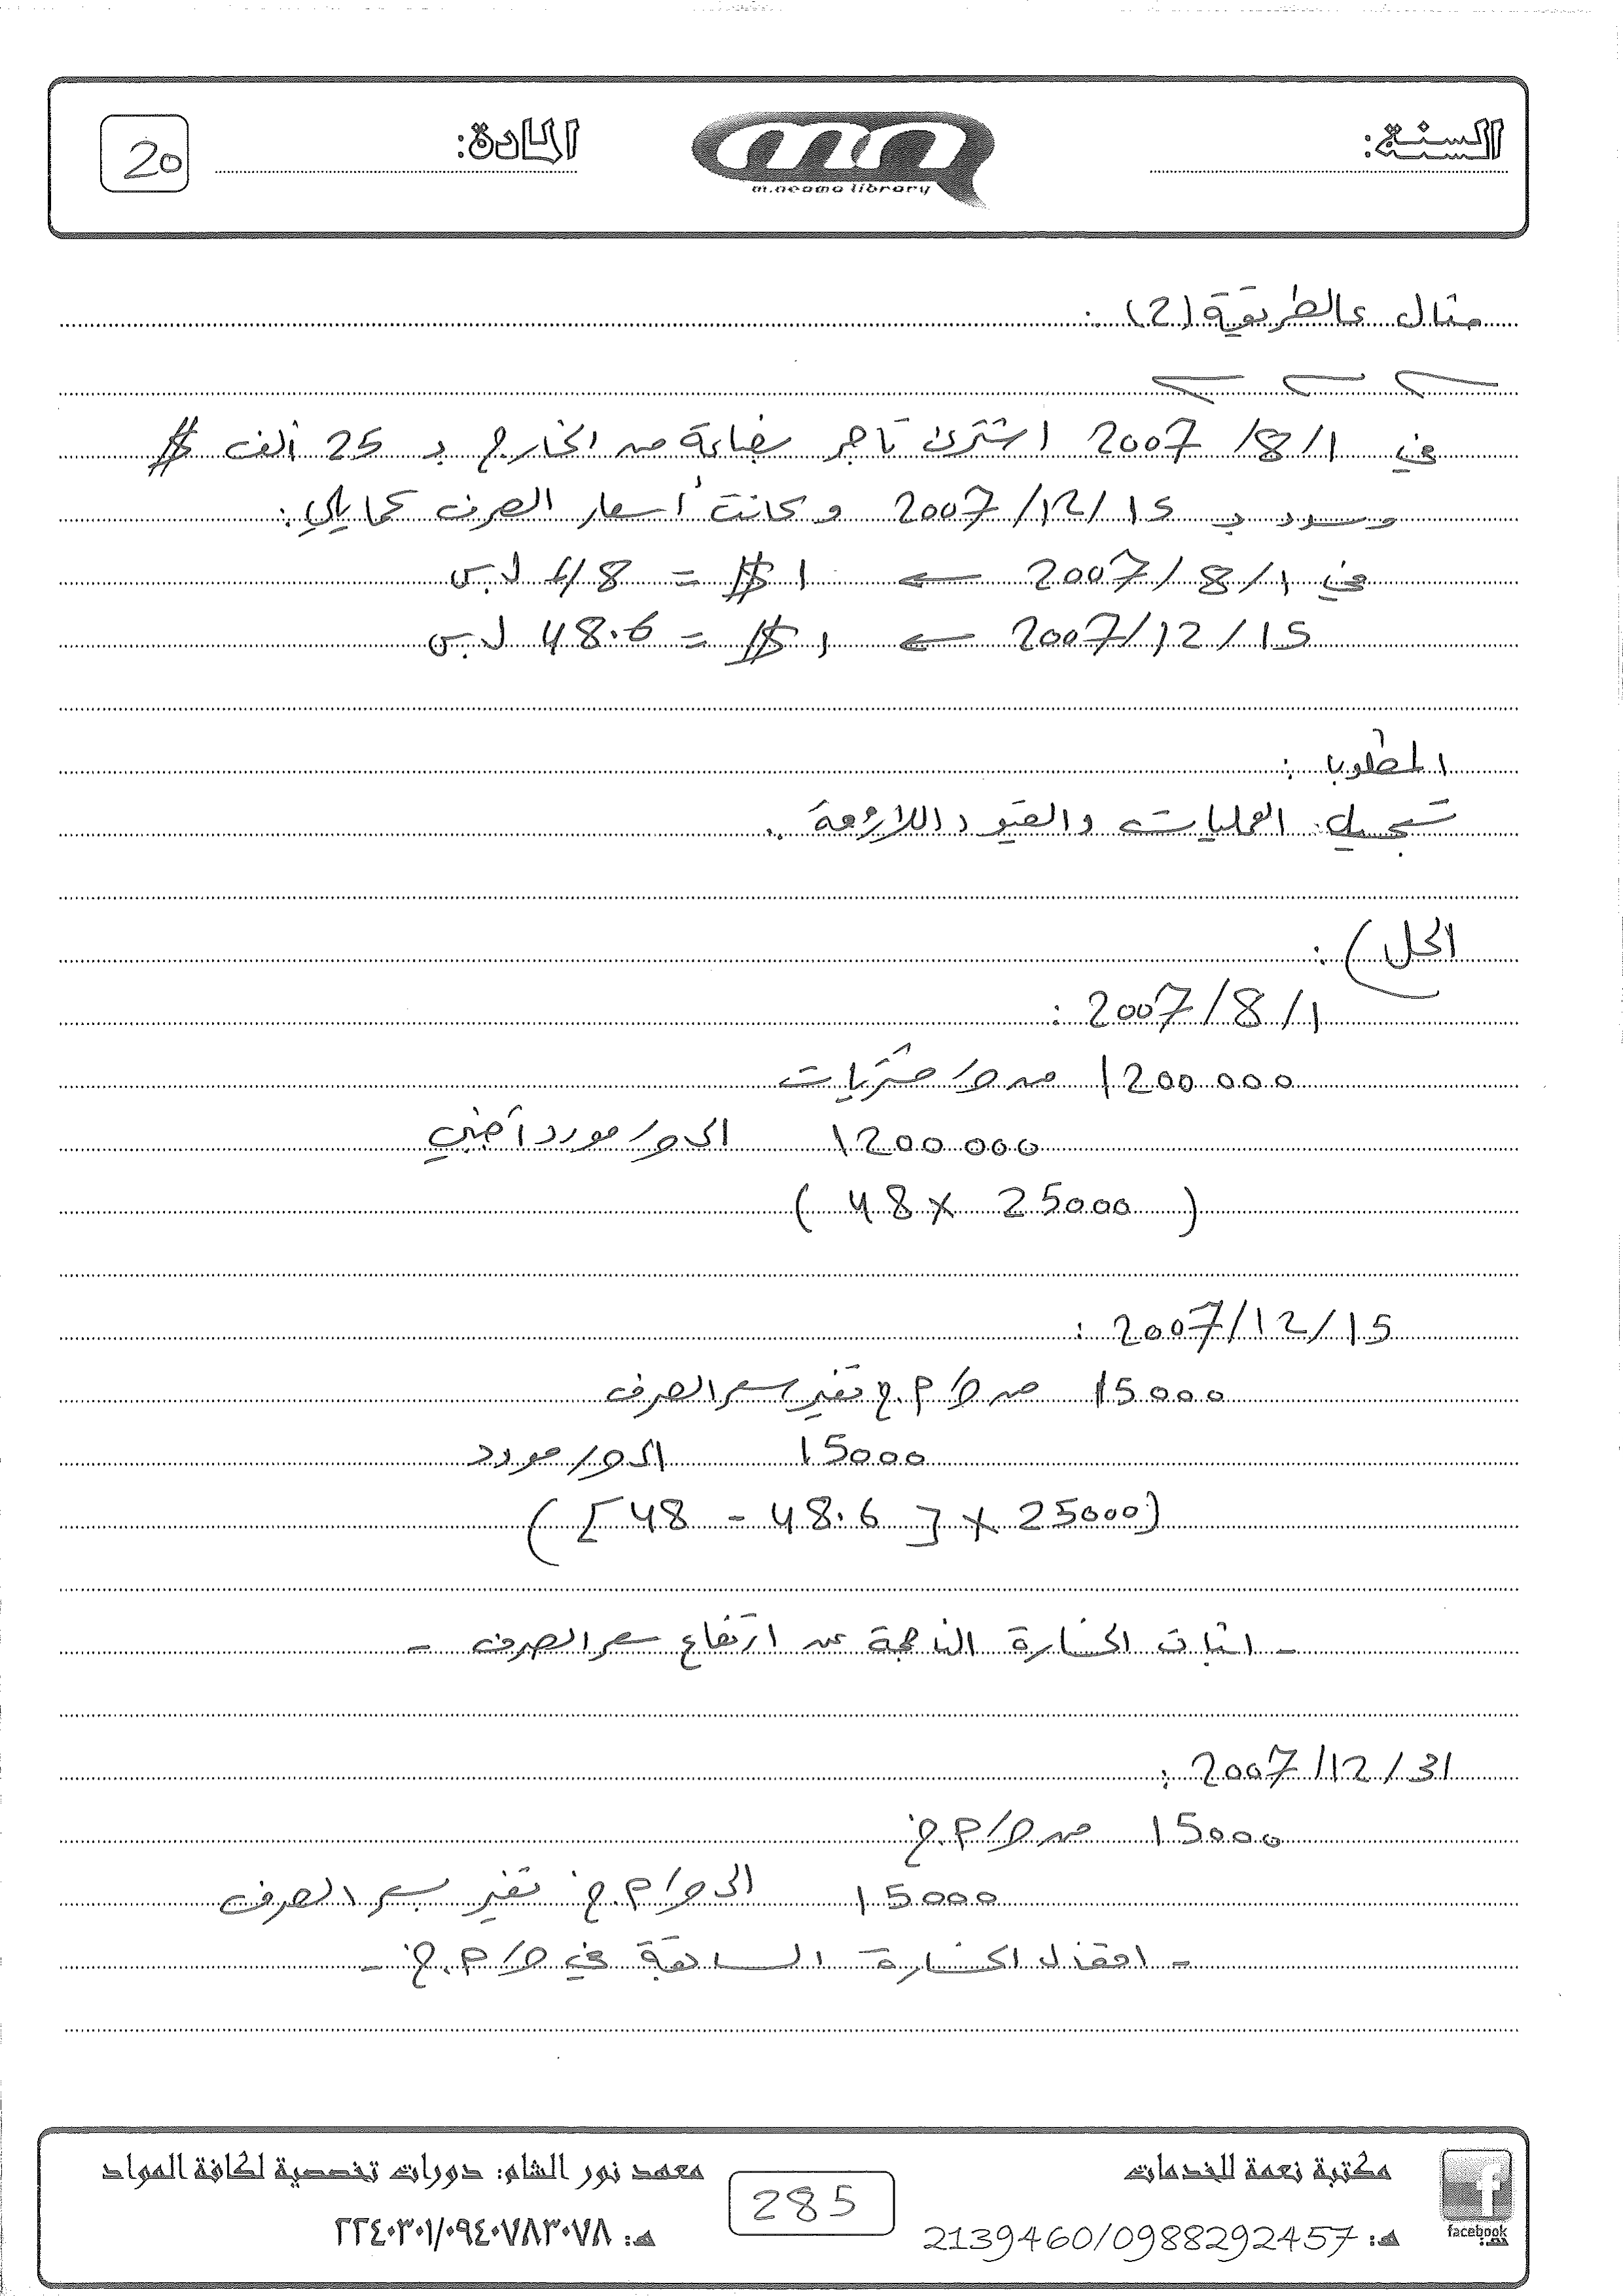 السنة:
m.neama library
المادة:
20
مثال عالطريقة (2) :
في 2007/8/1 اشترى تاجر بضاعة من الخارج بـ 25 ألف $
وسدد بـ 2007/12/15 وكانت أسعار الصرف كما يلي :
في 2007/8/1 ← 1 $ = 48 ل.س
2007/12/15 ← 1 $ = 48.6 ل.س
المطلوب :
تسجيل العمليات والقيود اللازمة ..
الحل) :
2007/8/1 :
1200 000 من ح/ مشتريات
1200 000 الى ح/ مورد أجنبي
( 48 × 25000 )
2007/12/15 :
15000 من ح/ م.خ تغير سعر الصرف
15000 الى ح/ مورد
([48 - 48.6] × 25000)
- اثبات الخسارة الناجمة عن ارتفاع سعر الصرف -
2007/12/31 :
15000 من ح/ م.خ
15000 الى ح/ م.خ تغير سعر الصرف
- اقفال الخسارة السابقة في ح/ م.خ -
facebook
مكتبة نعمة للخدمات
هـ: 2139460/0988292457
285
معهد نور الشام: دورات تخصصية لكافة المواد
هـ: ٢٢٤٠٣٠١/٠٩٤٠٧٨٣٠٧٨